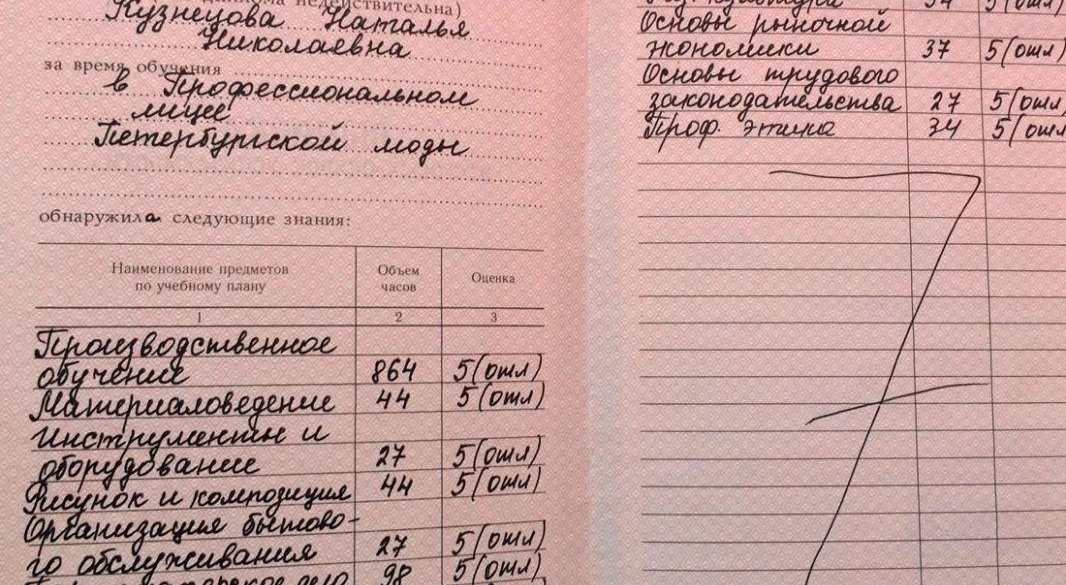 недействительна)
Кузнецова Наталья
Николаевна
за время обучения
в Профессиональном
лицее
Петербургской моды
обнаружила следующие знания:
Наименование предметов по учебному плану | Объем часов | Оценка
1 2 3
Производственное
обучение 864 5(отл)
Материаловедение 44 5(отл)
Инструменты и
оборудование 27 5(отл)
Рисунок и композиция 44 5(отл)
Организация бытово-
го обслуживания 27 5(отл)
дело 98 5(отл)
34 5(отл)
Основы рыночной
экономики 37 5(отл)
Основы трудового
законодательства 27 5(отл)
Проф. этика 34 5(отл